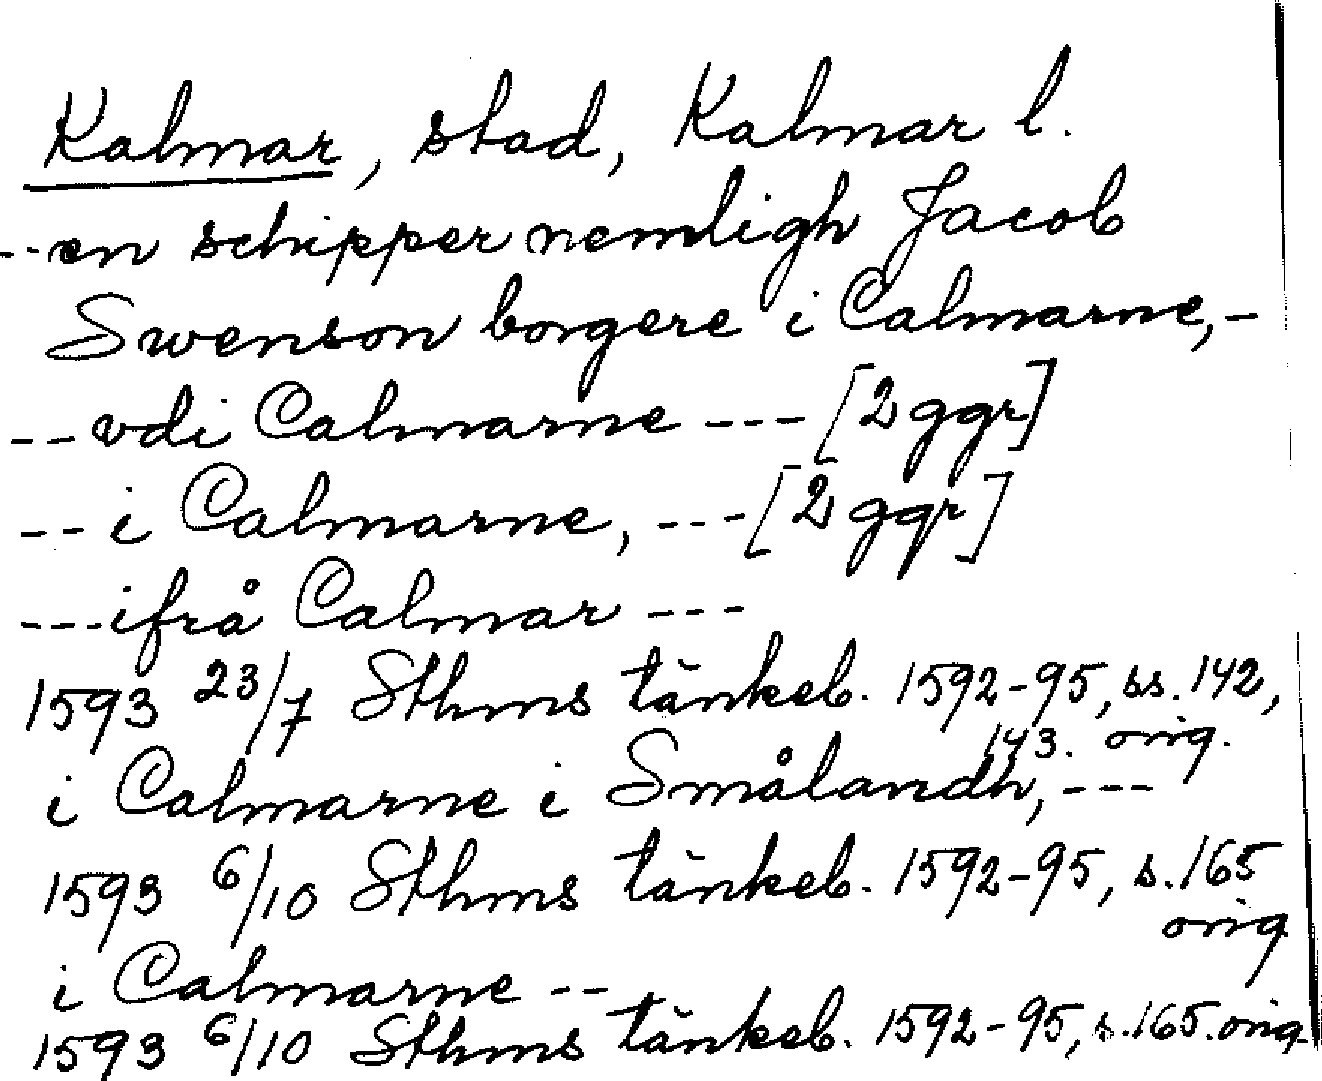 Kalmar, stad, Kalmar l.
--en schipper nemligh Jacob
Swenson borgere i Calmarne,-
--vdi Calmarne --- [2 ggr]
--i Calmarne, ---[2 ggr]
---ifrå Calmar ---
1593 23/7 Sthms tänkeb. 1592-95, ss. 142,
143. orig.
i Calmarne i Smålandh, ---
1593 6/10 Sthms tänkeb. 1592-95, s. 165
orig
i Calmarne --
1593 6/10 Sthms tänkeb. 1592-95, s. 165. orig.